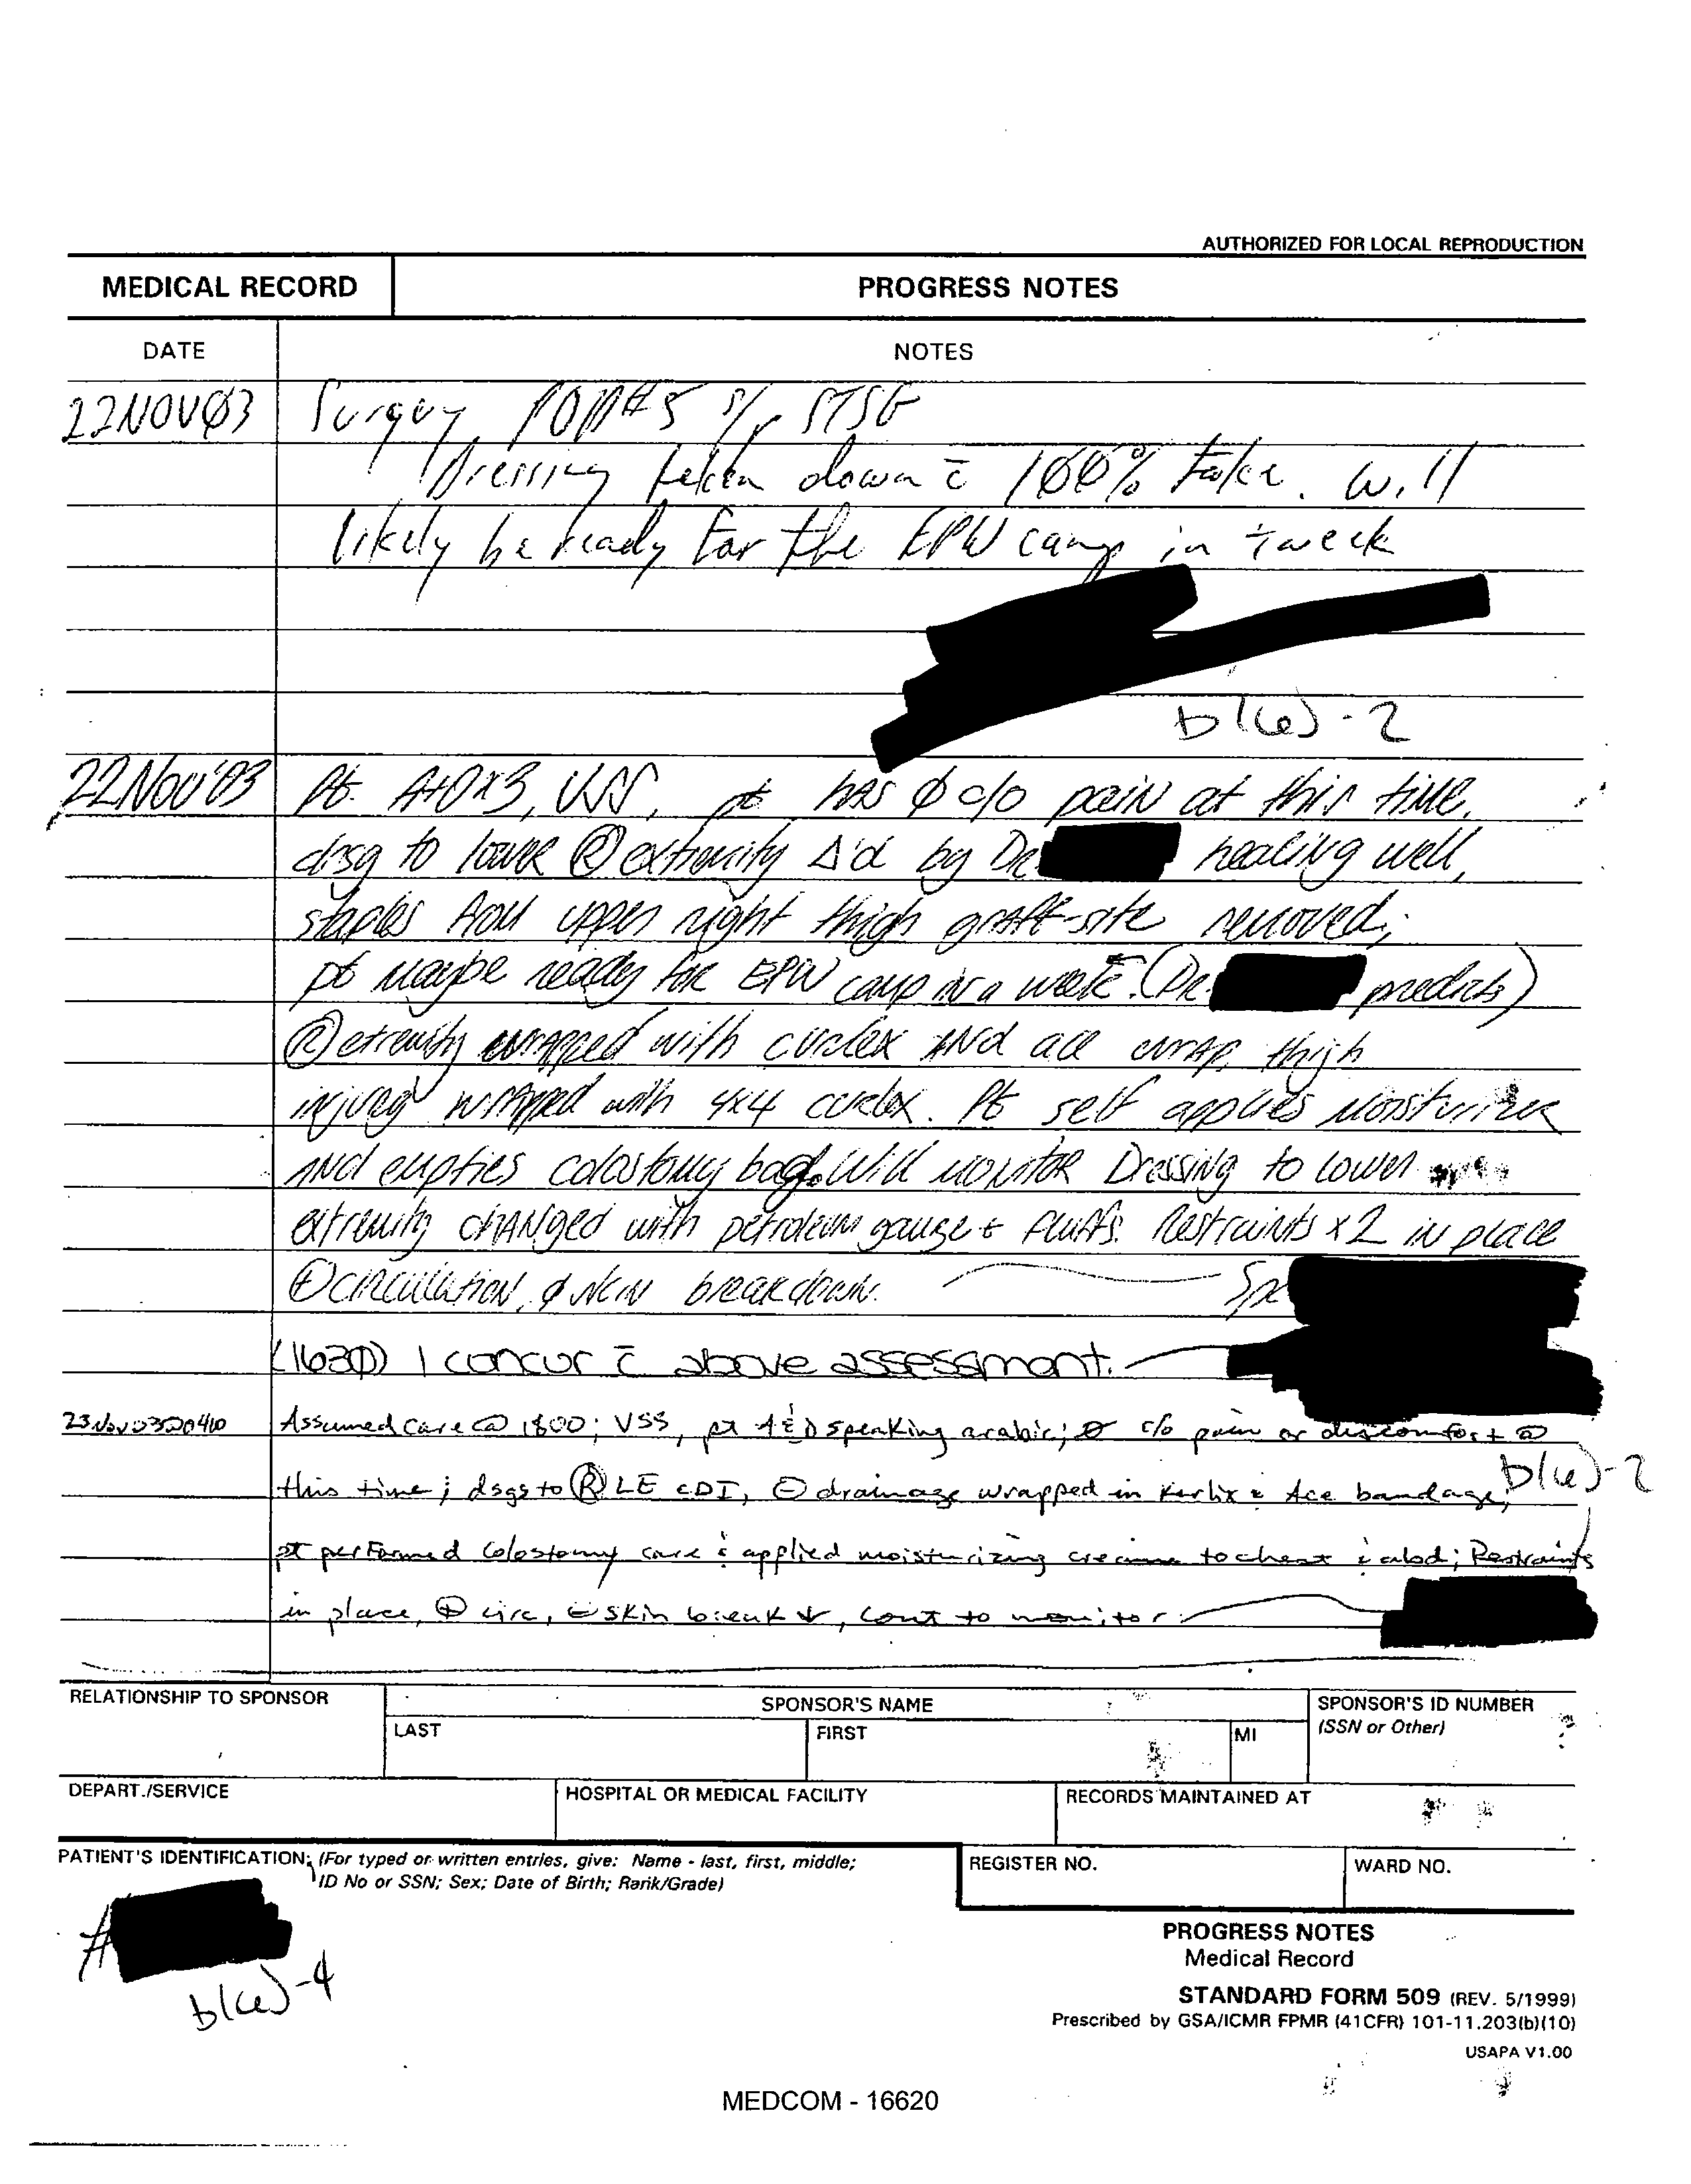 AUTHORIZED FOR LOCAL REPRODUCTION
MEDICAL RECORD
PROGRESS NOTES
DATE
NOTES
22NOVØ3
Surgery POD#5 s/p STSG
Dressing taken down c̄ 100% take. Will
likely be ready for the EPW camp in week
b(6)-2
22Nov'03
Pt. A+Ox3, VSS, pt has Ø c/o pain at this time.
dsg to lower Ⓡ extremity Δ'd by Dr. healing well,
staples from upper right thigh graft-site removed;
pt maybe ready for EPW camp in a week. (Dr. predicts)
Ⓡ etremity wrapped with curlex and ace wrap, thigh
injury wrapped with 4x4 curlex. Pt self applies moisturizer
and empties colostomy bag. Will monitor Dressing to lower
extremity changed with petroleum gauze + fluffs. Restraints x2 in place
⊕ circulation, Ø skin breakdown. Spc
(1630) I concur c̄ above assessment.
23Nov03 @0410
Assumed care @ 1800; VSS, pt A&O speaking arabic; Ø c/o pain or discomfort @
b(6)-2
this time; dsgs to Ⓡ LE CDI, ⊖ drainage wrapped in Kerlix & Ace bandage,
pt performed colostomy care & applied moisturizing creame to chest & abd; Restraints
in place, ⊕ circ, ⊖ skin break ↓, cont to monitor
RELATIONSHIP TO SPONSOR
SPONSOR'S NAME
SPONSOR'S ID NUMBER
(SSN or Other)
LAST
FIRST
MI
DEPART./SERVICE
HOSPITAL OR MEDICAL FACILITY
RECORDS MAINTAINED AT
PATIENT'S IDENTIFICATION: (For typed or written entries, give: Name - last, first, middle;
ID No or SSN; Sex; Date of Birth; Rank/Grade)
REGISTER NO.
WARD NO.
#
b(6)-4
PROGRESS NOTES
Medical Record
STANDARD FORM 509 (REV. 5/1999)
Prescribed by GSA/ICMR FPMR (41CFR) 101-11.203(b)(10)
USAPA V1.00
MEDCOM - 16620